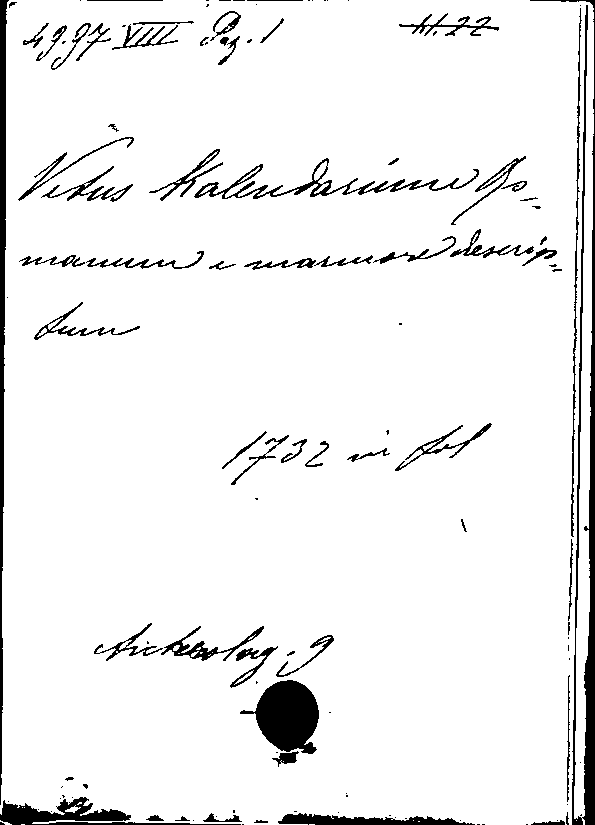 49.97 VIIII Pag. 1 41.22
Vetus Kalendarium Ro-
manum e marmore descrip-
tum
1732 in fol
Archeolog. 9